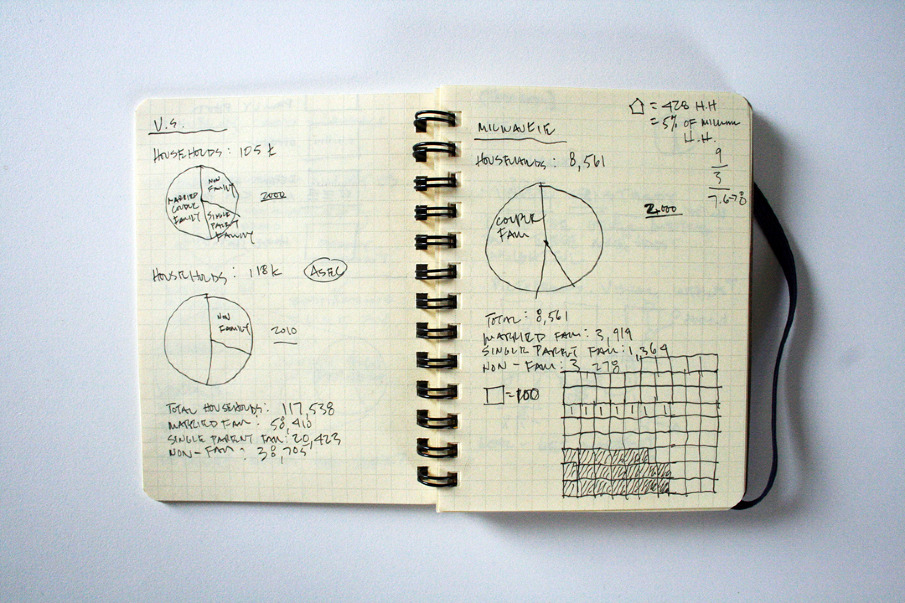 U.S.
HOUSEHOLDS: 105 K
NON
FAMILY
MARRIED
COUPLE
FAMILY
SINGLE
PARENT
FAMILY
2000
HOUSEHOLDS: 118 K
ASEC
NON
FAMILY
2010
TOTAL HOUSEHOLDS: 117,538
MARRIED FAM: 58,410
SINGLE PARENT FAM: 20,423
NON-FAM: 38,705
= 428 H.H
= 5% OF
H.H.
MILWAUKIE
HOUSEHOLDS: 8,561
9
3
7.6→8
COUPLE
FAM
2000
TOTAL: 8,561
MARRIED FAM: 3,919
SINGLE PARENT FAM: 1,364
NON-FAM: 3 278
= 100